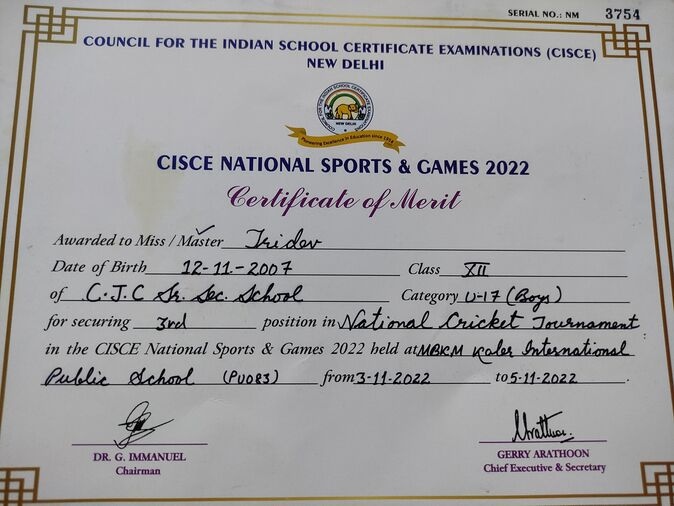 SERIAL NO.: NM 3754
COUNCIL FOR THE INDIAN SCHOOL CERTIFICATE EXAMINATIONS (CISCE)
NEW DELHI
COUNCIL FOR THE INDIAN SCHOOL CERTIFICATE EXAMINATIONS
NEW DELHI
Pioneering Excellence in Education since 1958
CISCE NATIONAL SPORTS & GAMES 2022
Certificate of Merit
Awarded to Miss / Master Tridev
Date of Birth 12-11-2007 Class XII
of C.J.C Sr. Sec. School Category U-17 (Boys)
for securing 3rd position in National Cricket Tournament
in the CISCE National Sports & Games 2022 held at MBKM Kaler International
Public School (PU083) from 3-11-2022 to 5-11-2022.
DR. G. IMMANUEL
Chairman
GERRY ARATHOON
Chief Executive & Secretary